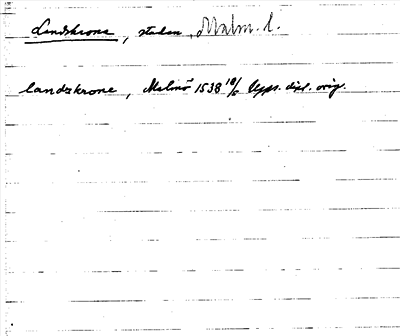 Landskrona, staden, Malm. l.
landzkrone, Malmö 1538 10/6 Upps. dipl. orig.